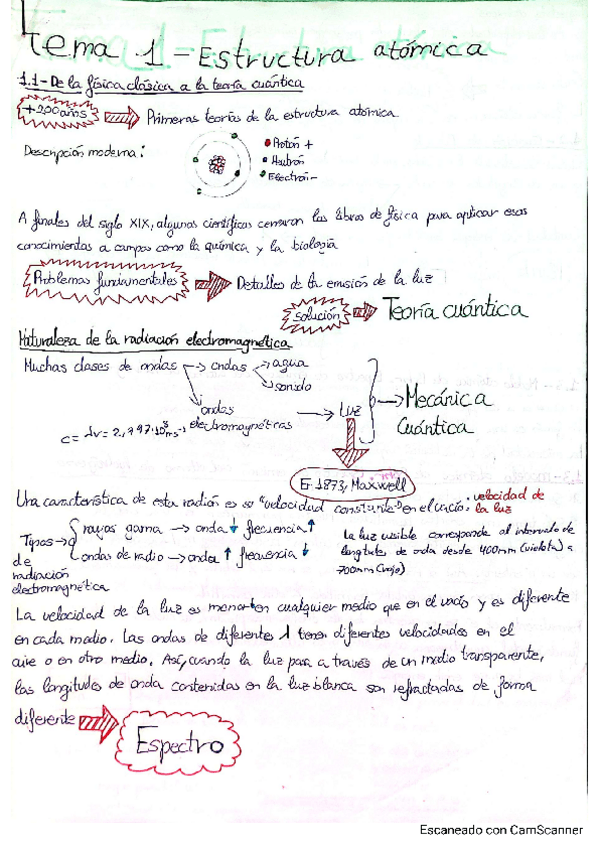 Tema 1 - Estructura atómica
1.1- De la física clásica a la teoría cuántica
+200 años → Primeras teorías de la estructura atómica
Descripción moderna:
Protón +
Neutrón
Electrón -
A finales del siglo XIX, algunos científicos cerraron los libros de física para aplicar esos
conocimientos a campos como la química y la biología
Problemas fundamentales → Detalles de la emisión de la luz
solución → Teoría cuántica
Naturaleza de la radiación electromagnética
Muchas clases de ondas → ondas → agua
→ sonido
ondas electromagnéticas → Luz → Mecánica Cuántica
c = λν = 2,997·10⁸ ms⁻¹
E 1873, Maxwell
Una característica de esta radión es su "velocidad constante" en el vacío; velocidad de la luz
Tipos de radiación electromagnética → rayos gama → onda ↓ frecuencia ↑
ondas de radio → onda ↑ frecuencia ↓
La luz visible corresponde al intervalo de
longitudes de onda desde 400nm (violeta) a
700nm (rojo)
La velocidad de la luz es menor en cualquier medio que en el vacío y es diferente
en cada medio. Las ondas de diferentes λ tienen diferentes velocidades en el
aire o en otro medio. Así, cuando la luz pasa a través de un medio transparente,
las longitudes de onda contenidas en la luz blanca son refractadas de forma
diferente → Espectro
Escaneado con CamScanner